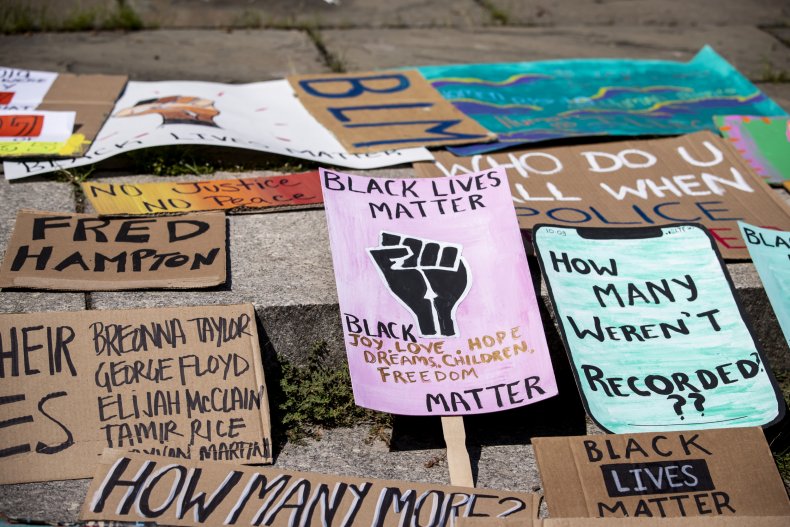 BLM
BLACK LIVES MATTER
WHO DO U
ALL WHEN
POLICE
NO JUSTICE
NO PEACE
FRED
HAMPTON
BLACK LIVES
MATTER
BLACK
JOY, LOVE, HOPE
DREAMS, CHILDREN,
FREEDOM
MATTER
HOW
MANY
WEREN'T
RECORDED?
??
HEIR
ES
BREONNA TAYLOR
GEORGE FLOYD
ELIJAH MCCLAIN
TAMIR RICE
MARTIN
HOW MANY MORE?
BLACK
LIVES
MATTER